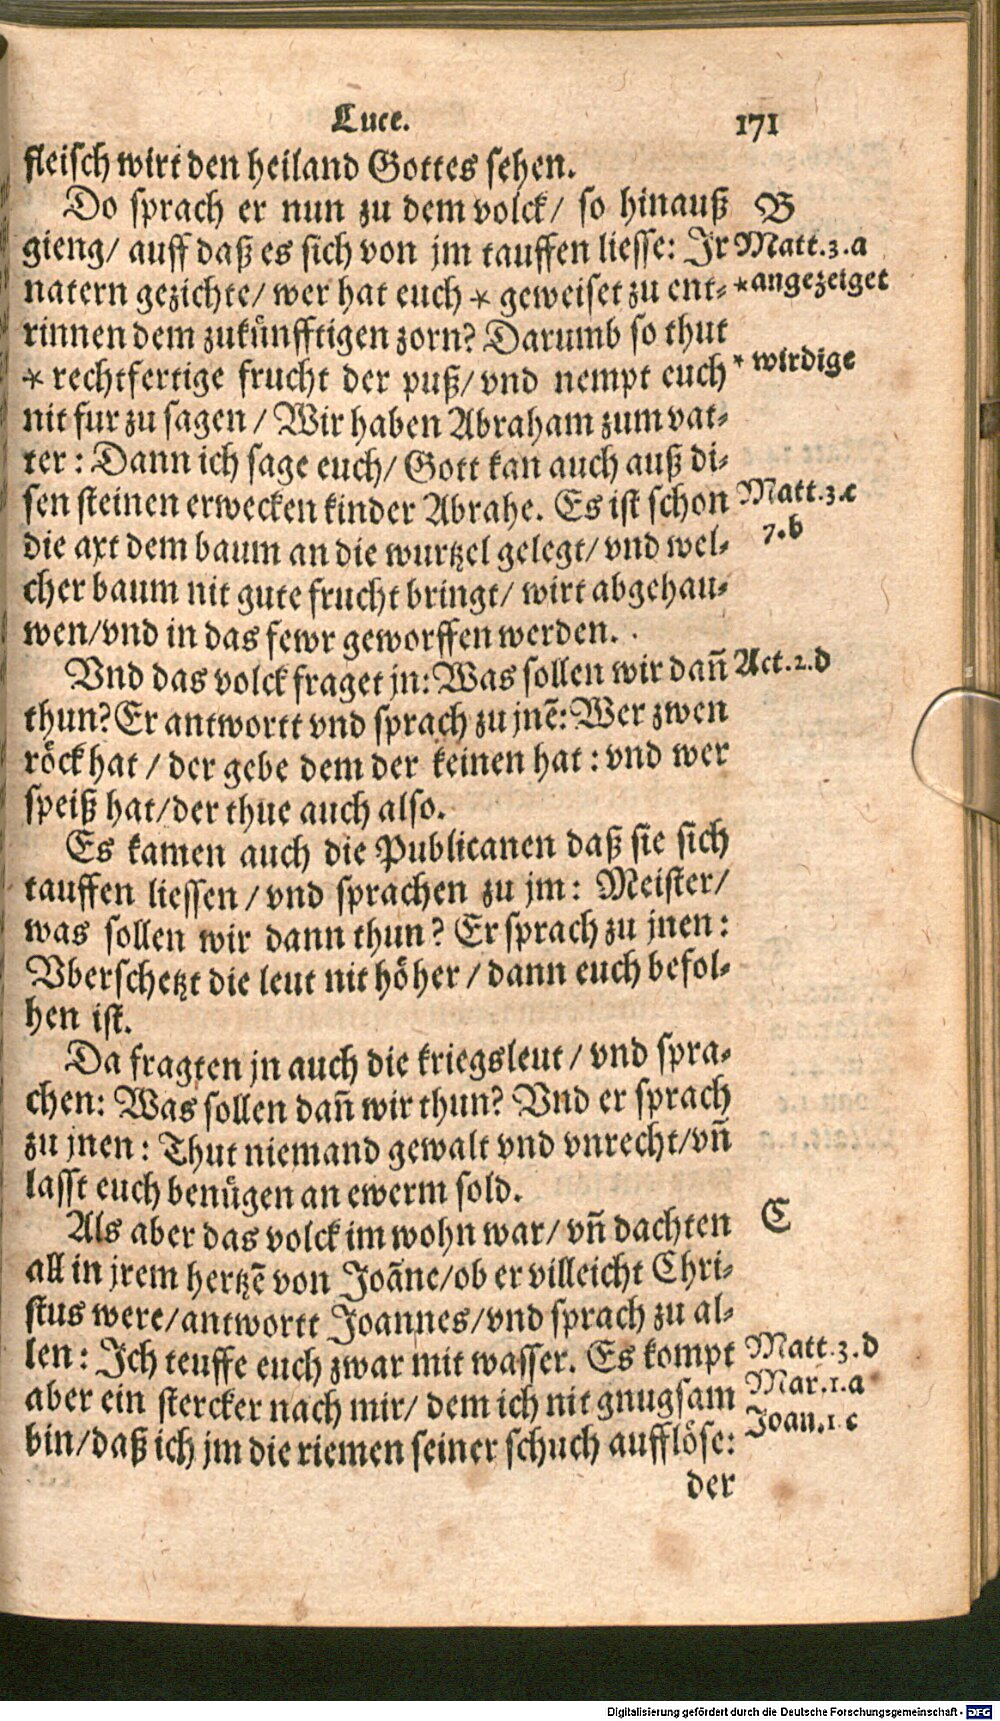 Luce. 171
fleisch wirt den heiland Gottes sehen.
Do sprach er nun zu dem volck/ so hinauß B
gieng/ auff daß es sich von jm tauffen liesse: Jr Matt.3.a
natern gezichte/ wer hat euch * geweiset zu ent- *angezeiget
rinnen dem zukünfftigen zorn? Darumb so thut
* rechtfertige frucht der puß/ vnd nempt euch * wirdige
nit fur zu sagen / Wir haben Abraham zum vat-
ter: Dann ich sage euch/ Gott kan auch auß di-
sen steinen erwecken kinder Abrahe. Es ist schon Matt.3.c
die axt dem baum an die wurtzel gelegt/ vnd wel- 7.b
cher baum nit gute frucht bringt/ wirt abgehau-
wen/vnd in das fewr geworffen werden.
Vnd das volck fraget jn: Was sollen wir dañ Act.2.d
thun? Er antwortt vnd sprach zu jnē: Wer zwen
röck hat / der gebe dem der keinen hat: vnd wer
speiß hat/der thue auch also.
Es kamen auch die Publicanen daß sie sich
tauffen liessen / vnd sprachen zu jm: Meister/
was sollen wir dann thun? Er sprach zu jnen:
Vberschetzt die leut nit höher / dann euch befol-
hen ist.
Da fragten jn auch die kriegsleut / vnd spra-
chen: Was sollen dañ wir thun? Vnd er sprach
zu jnen: Thut niemand gewalt vnd vnrecht/vñ
lasst euch benügen an ewerm sold.
Als aber das volck im wohn war/ vñ dachten C
all in jrem hertzē von Joãne/ob er villeicht Chri-
stus were/antwortt Joannes/vnd sprach zu al-
len: Ich teuffe euch zwar mit wasser. Es kompt Matt.3.d
aber ein stercker nach mir/ dem ich nit gnugsam Mar.1.a
bin/daß ich jm die riemen seiner schuch aufflöse: Joan.1 c
der
Digitalisierung gefördert durch die Deutsche Forschungsgemeinschaft - DFG